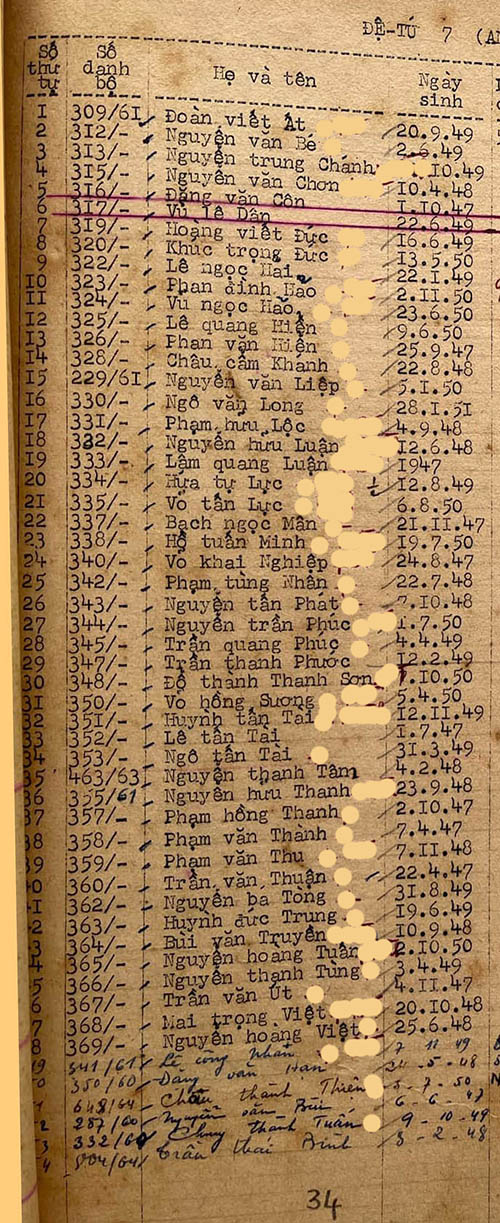 ĐỆ-TỨ 7 (A
Số thứ tự Số danh bộ Họ và tên Ngày sinh
I 309/6I Đoàn viết Át 20.9.49
2 3I2/- Nguyễn văn Bé 2.6.49
3 3I3/- Nguyễn trung Chánh I0.49
4 3I5/- Nguyễn văn Chơn I0.4.48
5 3I6/- Đặng văn Côn I.I0.47
6 3I7/- Vũ lê Dân 22.6.49
7 3I9/- Hoàng viết Đức I6.6.49
8 320/- Khúc trọng Đức I3.5.50
9 322/- Lê ngọc Hai 22.I.49
I0 323/- Phan đình Hào 2.II.50
II 324/- Vũ ngọc Hảo 23.6.50
I2 325/- Lê quang Hiện 9.6.50
I3 326/- Phan văn Hiện 25.9.47
I4 328/- Châu cẩm Khanh 22.8.48
I5 229/6I Nguyễn văn Liệp 5.I.50
I6 330/- Ngô văn Long 28.I.5I
I7 33I/- Phạm hữu Lộc 4.9.48
I8 332/- Nguyễn hữu Luận I2.6.48
I9 333/- Lâm quang Luận I947
20 334/- Hứa tự Lực I2.8.49
2I 335/- Võ tấn Lực 6.8.50
22 337/- Bạch ngọc Mân 2I.II.47
23 338/- Hồ tuấn Minh I9.7.50
24 340/- Võ khai Nghiệp 24.8.47
25 342/- Phạm tùng Nhân 22.7.48
26 343/- Nguyễn tấn Phát 7.I0.48
27 344/- Nguyễn trần Phúc I.7.50
28 345/- Trần quang Phúc 4.4.49
29 347/- Trần thanh Phước I2.2.49
30 348/- Đỗ thành Thanh Sơn I0.50
3I 350/- Võ hồng Sương 5.4.50
32 35I/- Huỳnh tấn Tài I2.II.49
33 352/- Lê tấn Tài I.7.47
34 353/- Ngô tấn Tài 3I.3.49
35 463/63 Nguyễn thanh Tâm 4.2.48
36 355/61 Nguyễn hữu Thanh 23.9.48
37 357/- Phạm hồng Thanh 2.I0.47
38 358/- Phạm văn Thành 7.4.47
39 359/- Phạm văn Thu 7.II.48
0 360/- Trần văn Thuận 22.4.47
I 362/- Nguyễn bá Tòng 3I.8.49
2 363/- Huỳnh đức Trung I9.6.49
3 364/- Bùi văn Truyền I0.9.48
4 365/- Nguyễn hoàng Tuấn 2.I0.50
5 366/- Nguyễn thanh Tùng 3.4.49
6 367/- Trần văn Út 4.II.47
7 368/- Mai trọng Việt 20.I0.48
8 369/- Nguyễn hoàng Việt 25.6.48
49 341/61 Lê công Nhân 7 11 49
0 350/60 văn 5-48
1 648/64 Châu thành Thiên 5-7-50
2 287/60 Nguyễn văn Bùi 6-6-47
3 332/60 Chung thanh Tuấn 9-10-49
4 804/64 Trần thái Bình 3-2-48
34